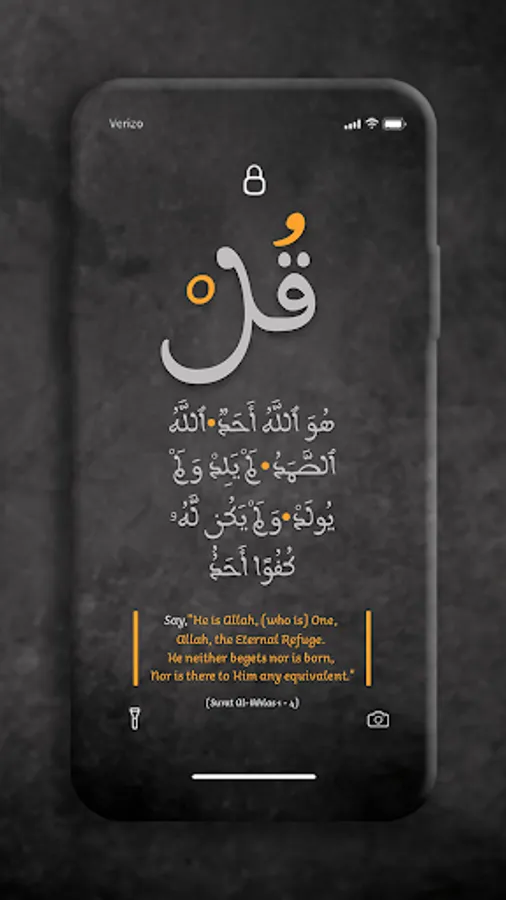 Verizo
قُلْ
هُوَ ٱللَّهُ أَحَدٌ•ٱللَّهُ
ٱلصَّمَدُ•لَمْ يَلِدْ وَلَمْ
يُولَدْ•وَلَمْ يَكُن لَّهُۥ
كُفُوًا أَحَدٌۢ
Say,"He is Allah, (who is) One,
Allah, the Eternal Refuge.
He neither begets nor is born,
Nor is there to Him any equivalent."
(Surat Al-Ikhlas 1 - 4)